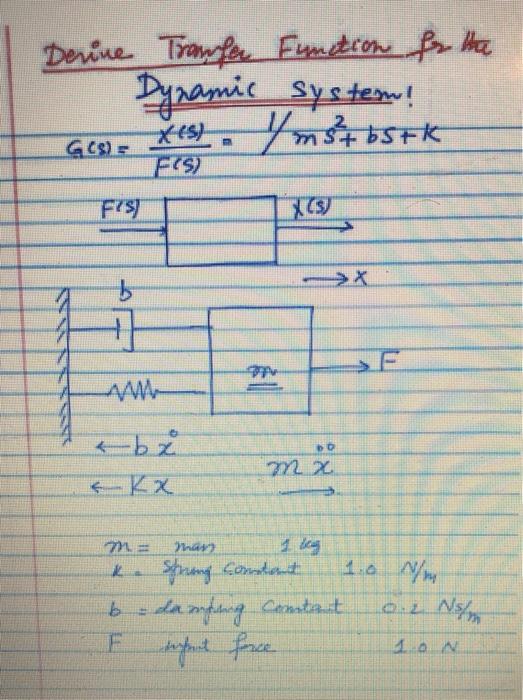 Derive Transfer Function for the
Dynamic system!
G(s) = X(s) / F(s) = 1/ms²+bs+k
F(s) X(s)
→ x
b
m → F
← bẋ mẍ
← Kx
m = mass 1 kg
k = Spring Constant 1.0 N/m
b = damping Constant 0.2 Ns/m
F input force 1.0 N